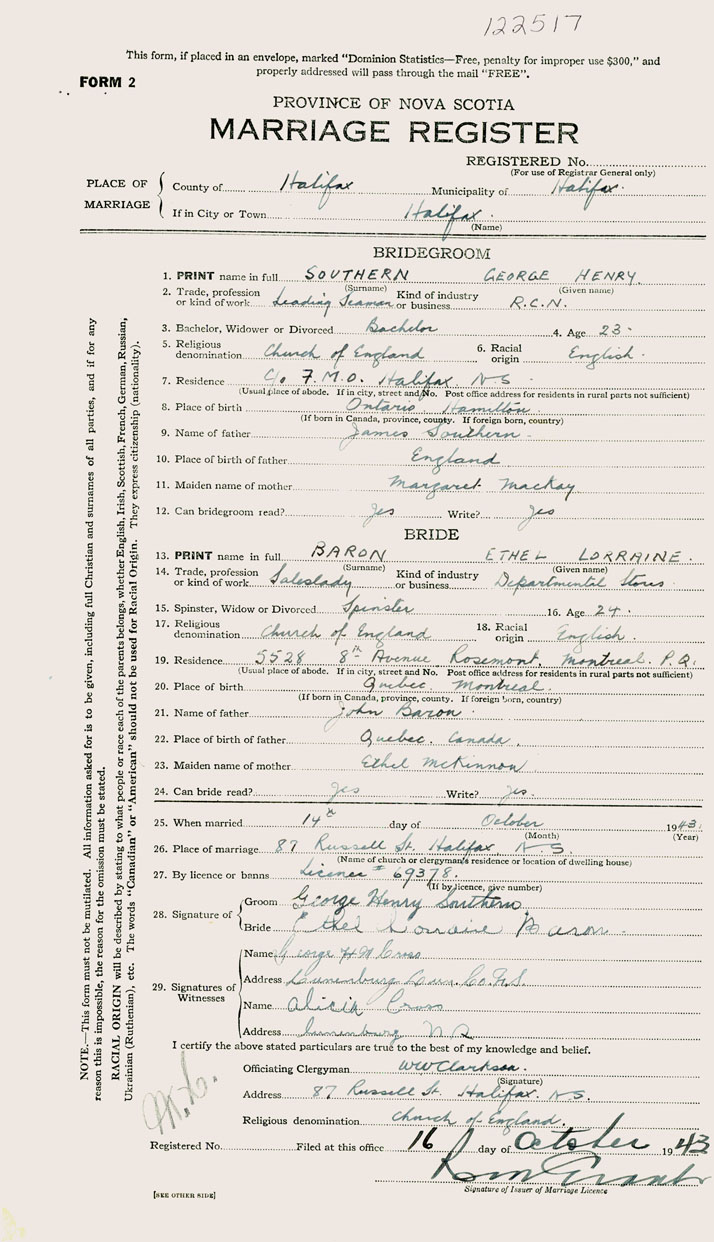 122517
This form, if placed in an envelope, marked "Dominion Statistics—Free, penalty for improper use $300," and
properly addressed will pass through the mail "FREE".
FORM 2
PROVINCE OF NOVA SCOTIA
MARRIAGE REGISTER
REGISTERED No.
(For use of Registrar General only)
PLACE OF MARRIAGE
County of Halifax Municipality of Halifax.
If in City or Town Halifax.
(Name)
BRIDEGROOM
1. PRINT name in full SOUTHERN GEORGE HENRY.
(Surname) (Given name)
2. Trade, profession or kind of work Leading Seaman Kind of industry or business R.C.N.
3. Bachelor, Widower or Divorced Bachelor 4. Age 23.
5. Religious denomination Church of England 6. Racial origin English.
7. Residence C/o F.M.O. Halifax N S
(Usual place of abode. If in city, street and No. Post office address for residents in rural parts not sufficient)
8. Place of birth Ontario Hamilton
(If born in Canada, province, county. If foreign born, country)
9. Name of father James Southern
10. Place of birth of father England
11. Maiden name of mother Margaret Mackay
12. Can bridegroom read? Yes Write? Yes
BRIDE
13. PRINT name in full BARON ETHEL LORRAINE.
(Surname) (Given name)
14. Trade, profession or kind of work Saleslady Kind of industry or business Departmental Stores
15. Spinster, Widow or Divorced Spinster 16. Age 24.
17. Religious denomination Church of England 18. Racial origin English.
19. Residence 5528 8th Avenue Rosemont. Montreal. P.Q.
(Usual place of abode. If in city, street and No. Post office address for residents in rural parts not sufficient)
20. Place of birth Quebec Montreal.
(If born in Canada, province, county. If foreign born, country)
21. Name of father John Baron
22. Place of birth of father Quebec. Canada.
23. Maiden name of mother Ethel McKinnon
24. Can bride read? Yes Write? Yes.
25. When married 14th day of October 1943.
(Month) (Year)
26. Place of marriage 87 Russell St. Halifax. N S.
(Name of church or clergyman's residence or location of dwelling house)
27. By licence or banns Licence # 69378.
(If by licence, give number)
28. Signature of
Groom George Henry Southern.
Bride Ethel Lorraine Baron.
29. Signatures of Witnesses
Name George H M Cross
Address Lunenburg Lun. Co. N.S.
Name Alicia Cross
Address Lunenburg N.S
I certify the above stated particulars are true to the best of my knowledge and belief.
Officiating Clergyman WW Clarkson.
(Signature)
Address 87 Russell St. Halifax. N S.
Religious denomination Church of England.
Registered No. Filed at this office 16 day of October 1943
Signature of Issuer of Marriage Licence
[SEE OTHER SIDE]
NOTE.—This form must not be mutilated. All information asked for is to be given, including full Christian and surnames of all parties, and if for any
reason this is impossible, the reason for the omission must be stated.
RACIAL ORIGIN will be described by stating to what people or race each of the parents belongs, whether English, Irish, Scottish, French, German, Russian,
Ukrainian (Ruthenian), etc. The words "Canadian" or "American" should not be used for Racial Origin. They express citizenship (nationality).